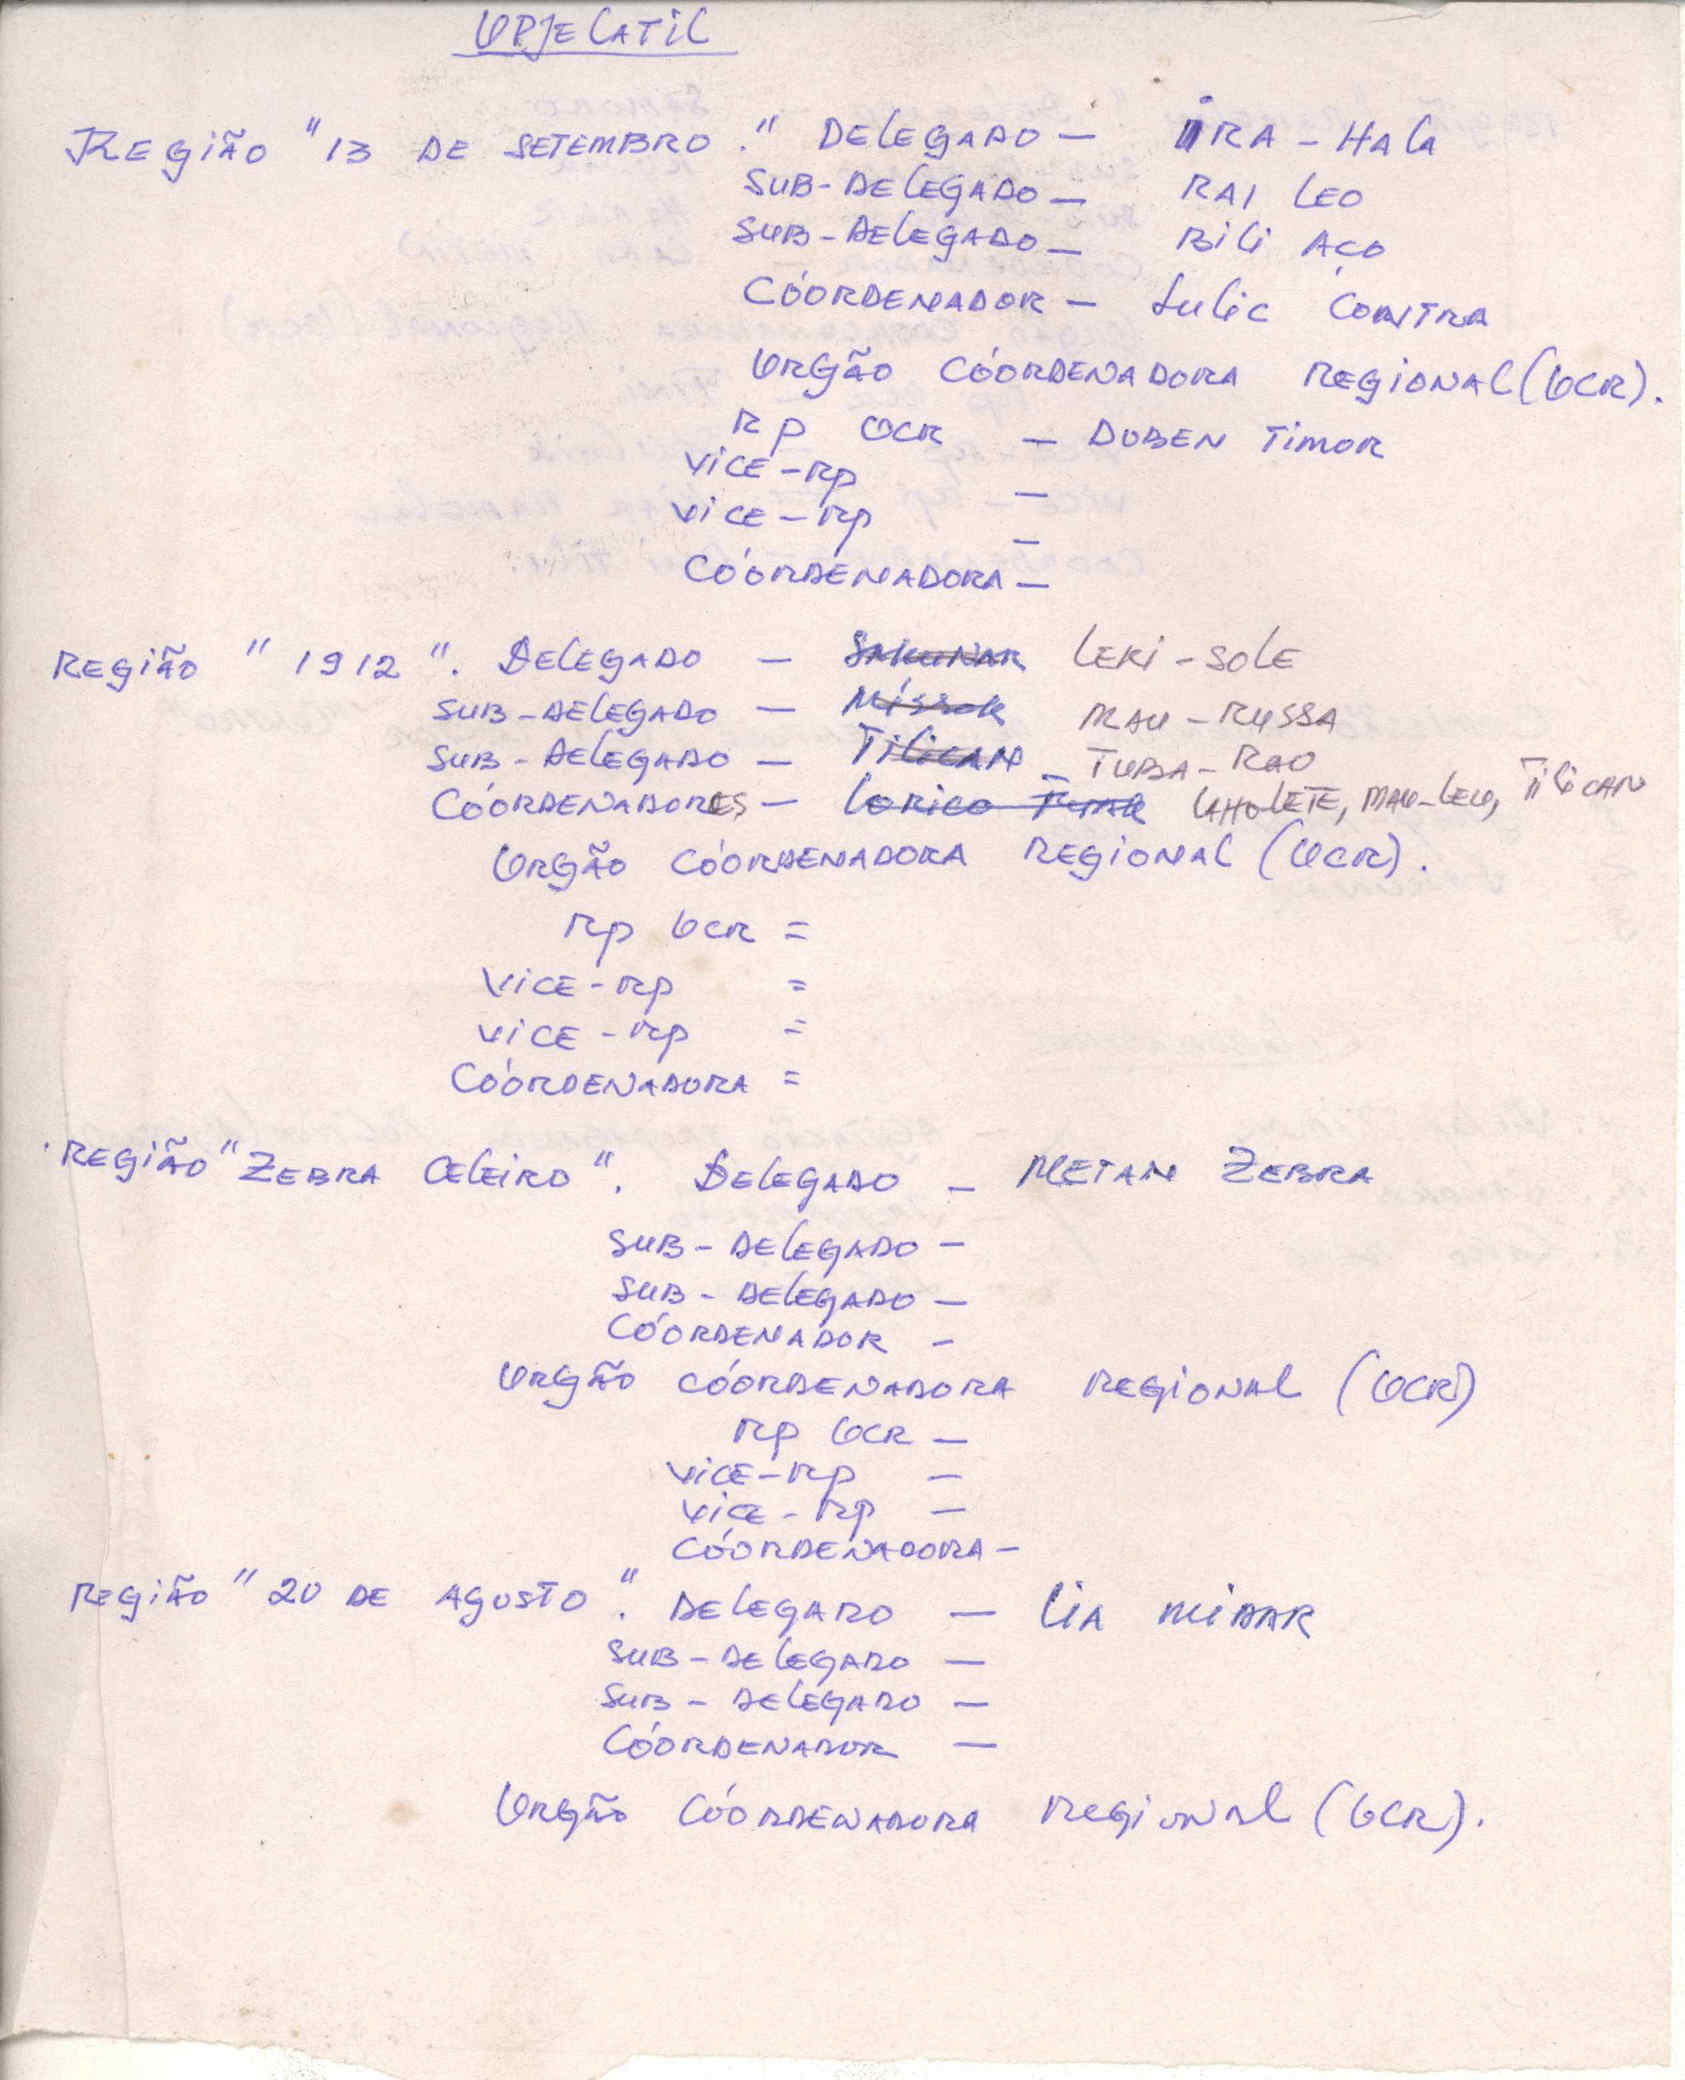 OPJELATIL
REGIÃO "13 DE SETEMBRO." DELEGADO — IRA-HALA
SUB-DELEGADO — RAI LEO
SUB-DELEGADO — BILI AÇO
CÓORDENADOR — LULIC CONTRA
ORGÃO CÓORDENADORA REGIONAL (OCR).
RP OCR — DUBEN TIMOR
VICE-RP —
VICE-RP —
CÓORDENADORA —
REGIÃO "1912". DELEGADO — SAKUNAR LEKI-SOLE
SUB-DELEGADO — MISSOK MAU-RUSSA
SUB-DELEGADO — TILICAN — TUBA-RAO
CÓORDENADORES — LORICO LAHOLETE, MAU-LEU, TILICAN
ORGÃO CÓORDENADORA REGIONAL (OCR).
RP OCR =
VICE-RP =
VICE-RP =
CÓORDENADORA =
REGIÃO "ZEBRA CELEIRO". DELEGADO — METAN ZEBRA
SUB-DELEGADO —
SUB-DELEGADO —
CÓORDENADOR —
ORGÃO CÓORDENADORA REGIONAL (OCR)
RP OCR —
VICE-RP —
VICE-RP —
CÓORDENADORA —
REGIÃO "20 DE AGUSTO". DELEGADO — LIA MIDAR
SUB-DELEGADO —
SUB-DELEGADO —
CÓORDENADOR —
ORGÃO CÓORDENADORA REGIONAL (OCR).